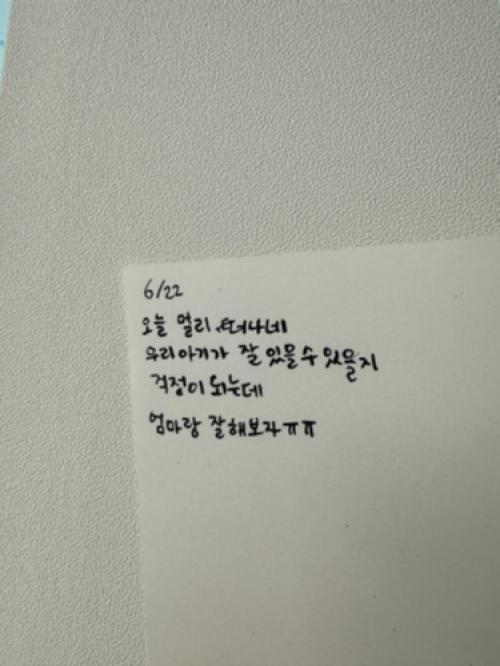 6/22
오늘 멀리 떠나네
우리아기가 잘 있을수 있을지
걱정이 되는데
엄마랑 잘해보자ㅠㅠ